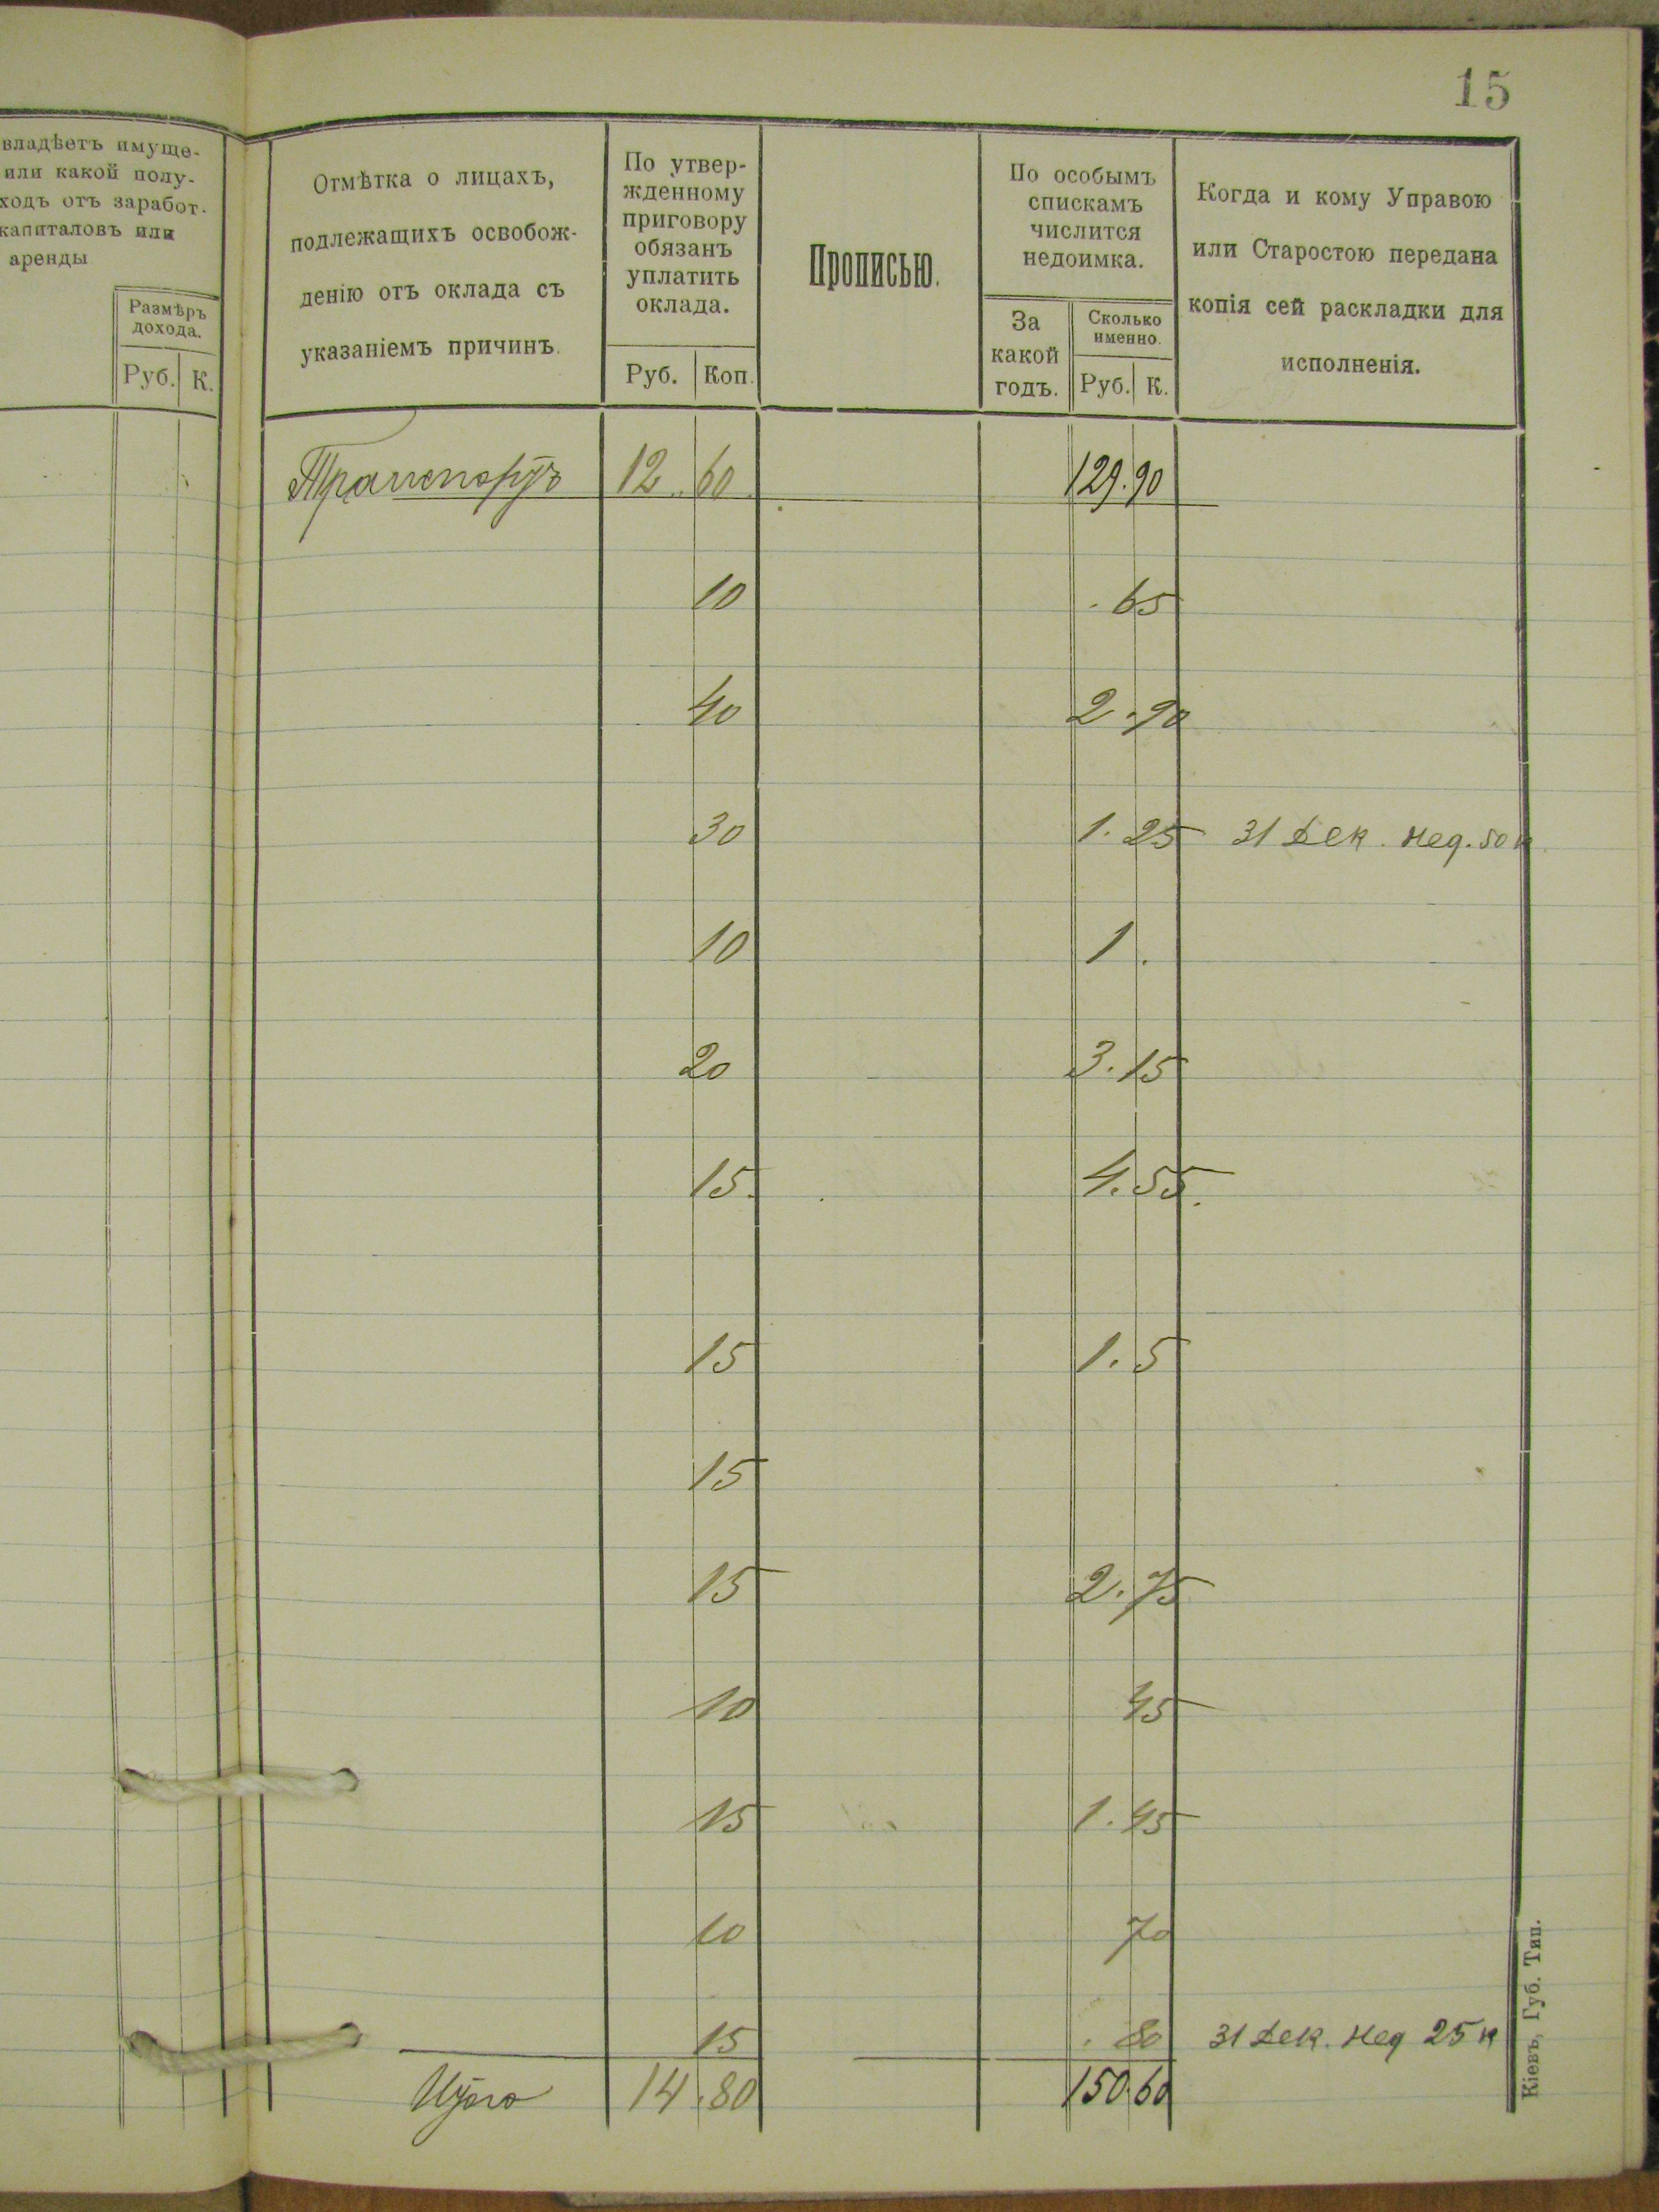 15
владѣетъ имуще-
или какой полу-
ходъ отъ заработ.
капиталовъ или
аренды
Размѣръ
дохода.
Руб. К.
Отмѣтка о лицахъ,
подлежащихъ освобож-
денію отъ оклада съ
указаніемъ причинъ.
По утвер-
жденному
приговору
обязанъ
уплатить
оклада.
Руб. Коп.
Прописью.
По особымъ
спискамъ
числится
недоимка.
За
какой
годъ.
Сколько
именно.
Руб. К.
Когда и кому Управою
или Старостою передана
копія сей раскладки для
исполненія.
Транспортъ 12.60 129.90
10 .65
40 2.90
30 1.25 31 Дек. нед. 50 к
10 1.
20 3.15
15. 4.55.
15 1.5
15
15 2.75
10 45
15 1.45
10 70
15 . 80 31 Дек. нед 25 к
Итого 14.80 150.60
Кіевъ, Губ. Тип.